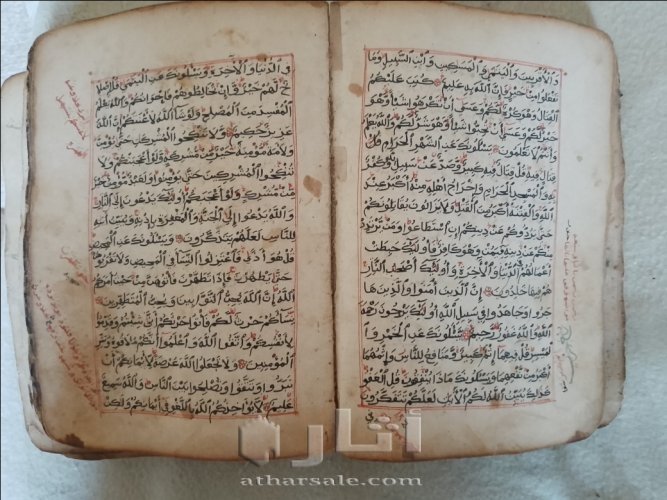 والأقربين واليتمى والمسكين وابن السبيل وما
تفعلوا من خير فإن الله به عليم كتب عليكم
القتال وهو كره لكم وعسى أن تكرهوا شيئا وهو
خير لكم وعسى أن تحبوا شيئا وهو شر لكم والله يعلم
وأنتم لا تعلمون يسئلونك عن الشهر الحرام قتال
فيه قل قتال فيه كبير وصد عن سبيل الله وكفر
به والمسجد الحرام وإخراج أهله منه أكبر عند
الله والفتنة أكبر من القتل ولا يزالون يقاتلونكم
حتى يردوكم عن دينكم إن استطاعوا ومن يرتدد
منكم عن دينه فيمت وهو كافر فأولئك حبطت
أعمالهم في الدنيا والآخرة وأولئك أصحب النار
هم فيها خلدون إن الذين آمنوا والذين ها
جروا وجاهدوا في سبيل الله أولئك يرجون رحمة
الله والله غفور رحيم يسئلونك عن الخمر وا
لميسر قل فيهما إثم كبير ومنافع للناس وإثمهما
أكبر من نفعهما ويسئلونك ماذا ينفقون قل العفو
كذلك يبين الله لكم الآيات لعلكم تتفكرون
في
في الدنيا والآخرة ويسئلونك عن اليتمى قل إصلا
ح لهم خير وإن تخالطوهم فإخوانكم والله يعلم
المفسد من المصلح ولو شاء الله لأعنتكم إن الله
عزيز حكيم ولا تنكحوا المشركت حتى يؤمن
ولأمة مؤمنة خير من مشركة ولو أعجبتكم ولا
تنكحوا المشركين حتى يؤمنوا ولعبد مؤمن خير
من مشرك ولو أعجبكم أولئك يدعون إلى النار
والله يدعوا إلى الجنة والمغفرة بإذنه ويبين آيته
للناس لعلهم يتذكرون ويسئلونك عن المحيض
قل هو أذى فاعتزلوا النساء في المحيض ولا تقربوهن
حتى يطهرن فإذا تطهرن فأتوهن من حيث أمركم
الله إن الله يحب التوابين ويحب المتطهرين
نساؤكم حرث لكم فأتوا حرثكم أنى شئتم وقدموا
لأنفسكم واتقوا الله واعلموا أنكم ملاقوه وبشر
المؤمنين ولا تجعلوا الله عرضة لأيمانكم أن
تبروا وتتقوا وتصلحوا بين الناس والله سميع
عليم لا يؤاخذكم الله باللغو في أيمانكم ولكن
أثار
atharsale.com